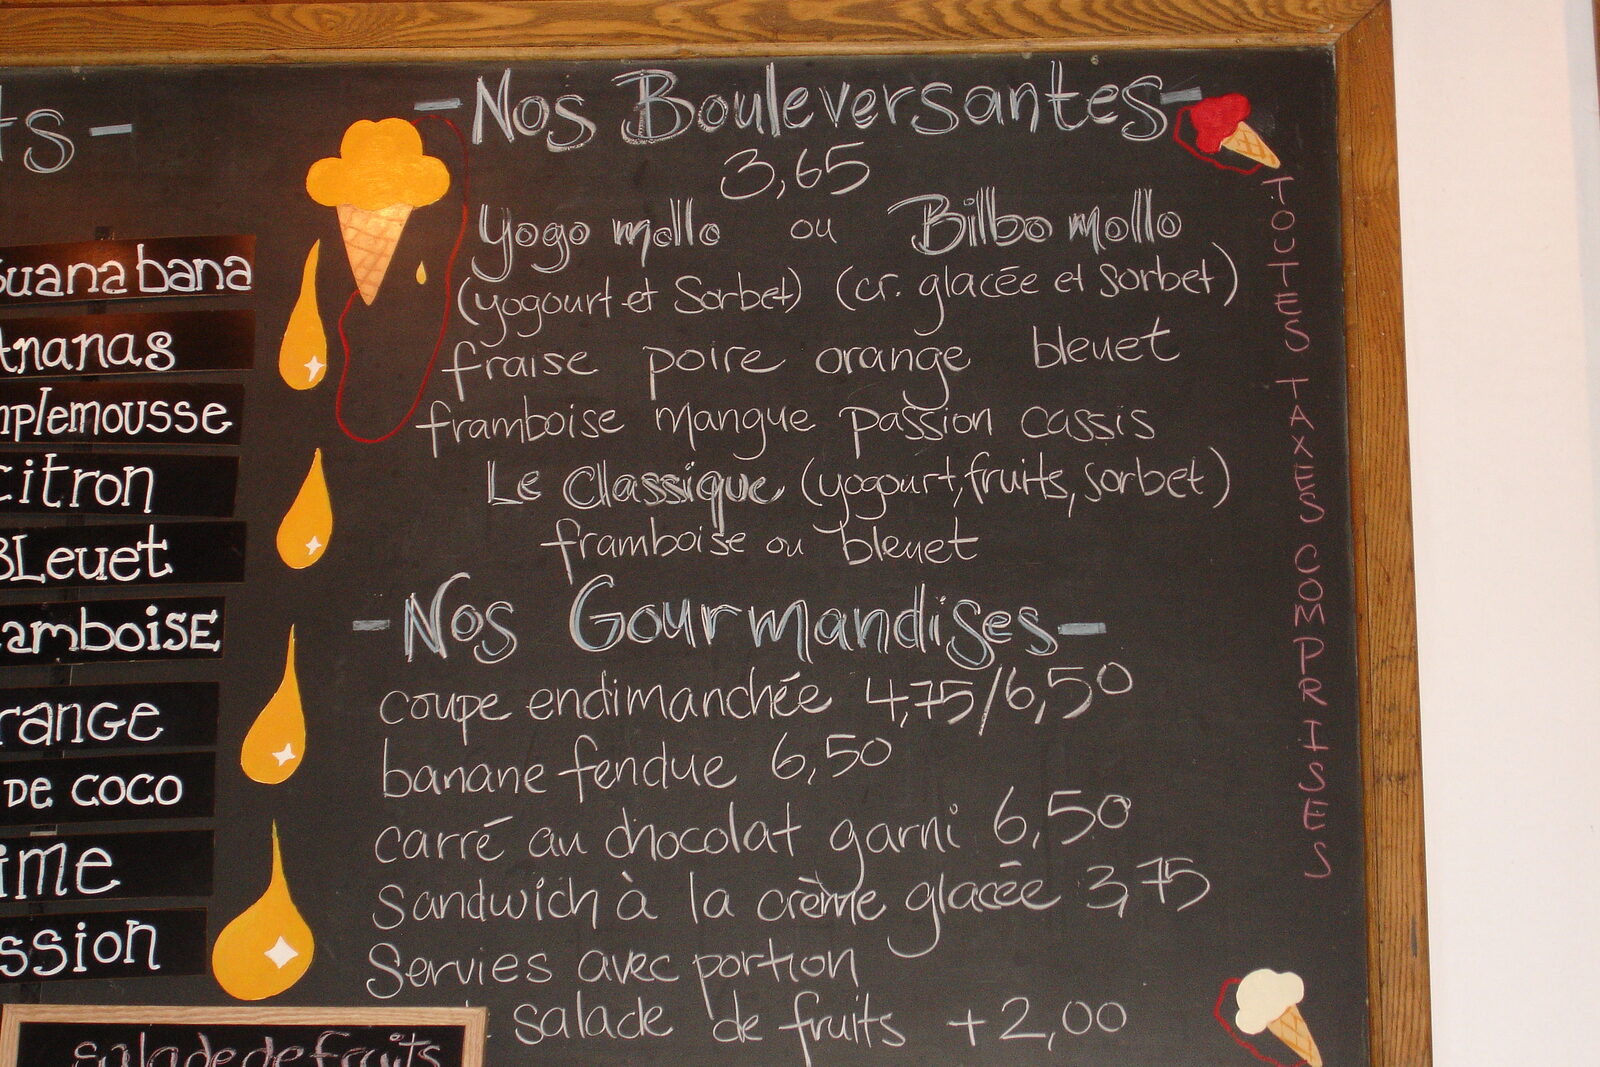 ts -
Guanabana
Ananas
mplemousse
Citron
BLeuet
ambOiSE
range
DE COCO
ime
ssion
salade de fruits
- Nos Bouleversantes -
3,65
Yogo mollo ou Bilbo mollo
(yogourt et Sorbet) (cr. glacée et Sorbet)
fraise poire orange bleuet
framboise mangue passion cassis
Le Classique (yogourt, fruits, sorbet)
framboise ou bleuet
- Nos Gourmandises -
coupe endimanchée 4,75/6,50
banane fendue 6,50
carré au chocolat garni 6,50
Sandwich à la crème glacée 3,75
Servies avec portion
salade de fruits +2,00
TOUTES TAXES COMPRISES